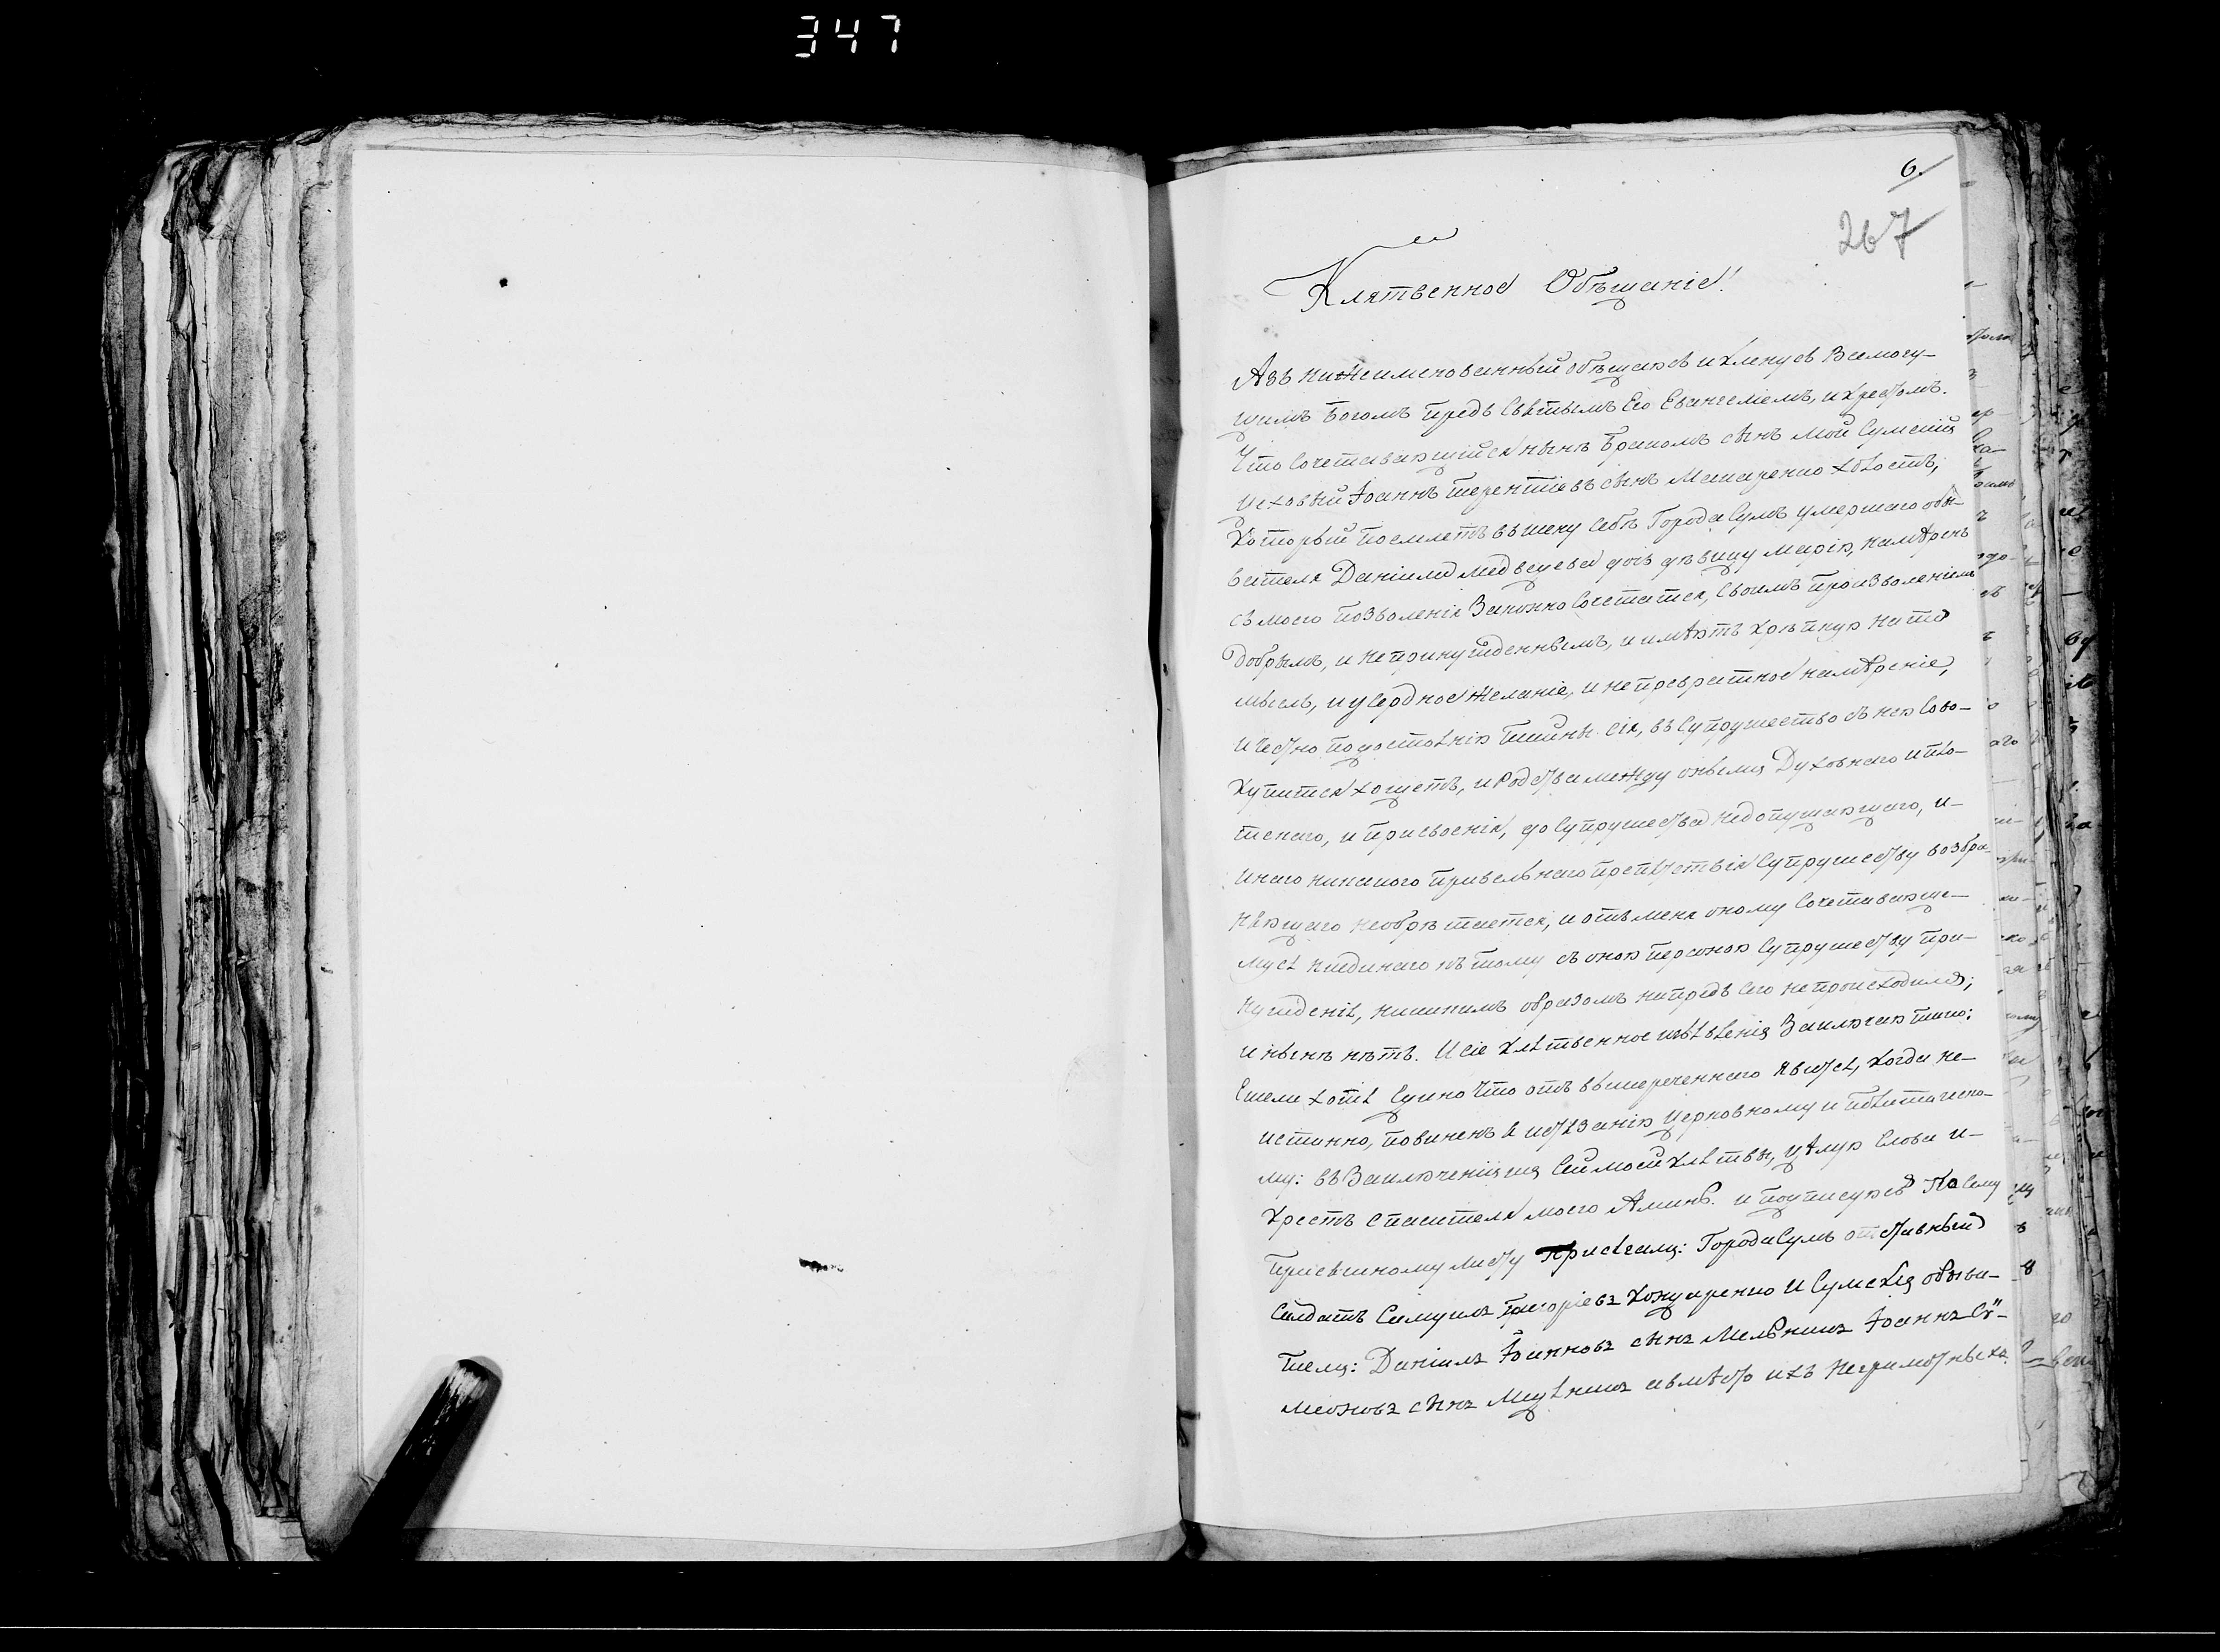 347
6.
267
Клятвенное Обѣщаніе!
Азъ нижеименованный обѣщаюсь и кленусь Всемогу-
щимъ Богомъ предъ Святымъ Его Евангелiемъ, и крестомъ.
Что сочетавающійся нынѣ бракомъ сынъ мой Сумскій
цеховый Іоаннъ Терентіевъ сынъ Макаренко холостъ,
который поемлетъ въ жену себѣ Города Сумъ умершаго обы-
вателя Даніила Медведева дочь дѣвицу Марію, намѣренъ
съ моего позволенія Законно Сочетатися, Своимъ Произволеніемъ
добрымъ, и непринужденнымъ, и имѣютъ крѣпкую на то
мысль, и усердное желаніе, и непревратное намѣреніе,
и честно по достоянію тайны сія, въ Супружество съ нею Сово-
купитися хощетъ, и Родства между оными Духовнаго и пло-
тскаго, и присвоенія, до Супружества недопущающаго, и-
инаго никакого правильнаго препятствія Супружеству возбра-
няющаго необрѣтается, и отъ меня оному Сочетавающе-
муся ниединаго къ тому съ оною персоною Супружеству при-
нужденія, никакимъ образомъ напредъ сего непроисходило,
и нынѣ нѣтъ. И сіе клятвенное Заключаю тако:
Ежели хотя Едино что отъ вышереченнаго явится, когда не-
истинно, повиненъ я истязанію церковному и политическо-
му: въ Заключеніи же Сей моей клятвы, цѣлую Слова и-
крестъ Спасителя моего Аминь. и подписуюсь По сему
присяжному листу присягали: Города Сумъ отставный
Салдатъ Самуилъ Григоріевъ Кондаренко и Сумскія обыва-
тели: Даніилъ Іоанновъ сынъ Мельникъ Іоаннъ Си-
меоновъ сынъ а вмѣсто ихъ неграмотныхъ